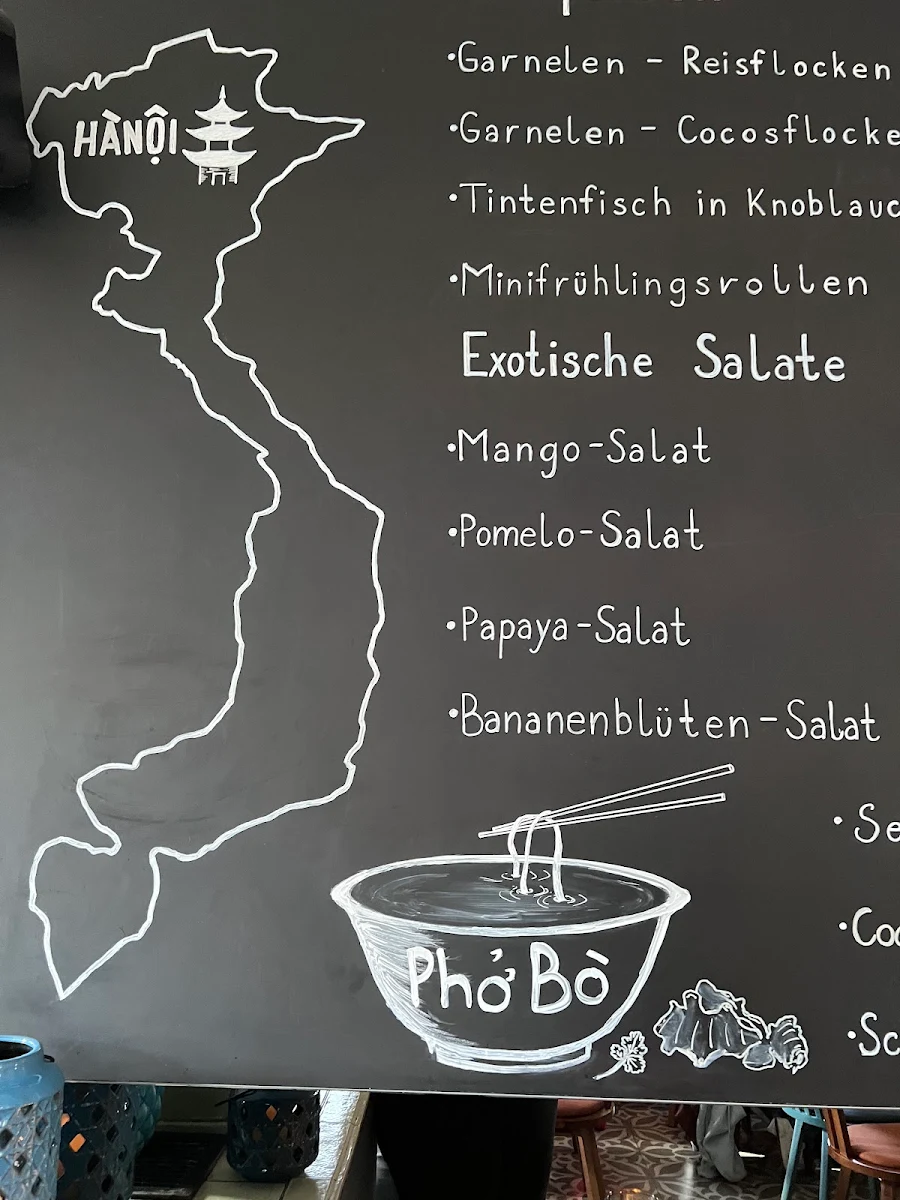 HÀNỘI
·Garnelen - Reisflocken
·Garnelen - Cocosflocke
·Tintenfisch in Knoblauc
·Minifrühlingsrollen
Exotische Salate
·Mango-Salat
·Pomelo-Salat
·Papaya-Salat
·Bananenblüten-Salat
Phở Bò